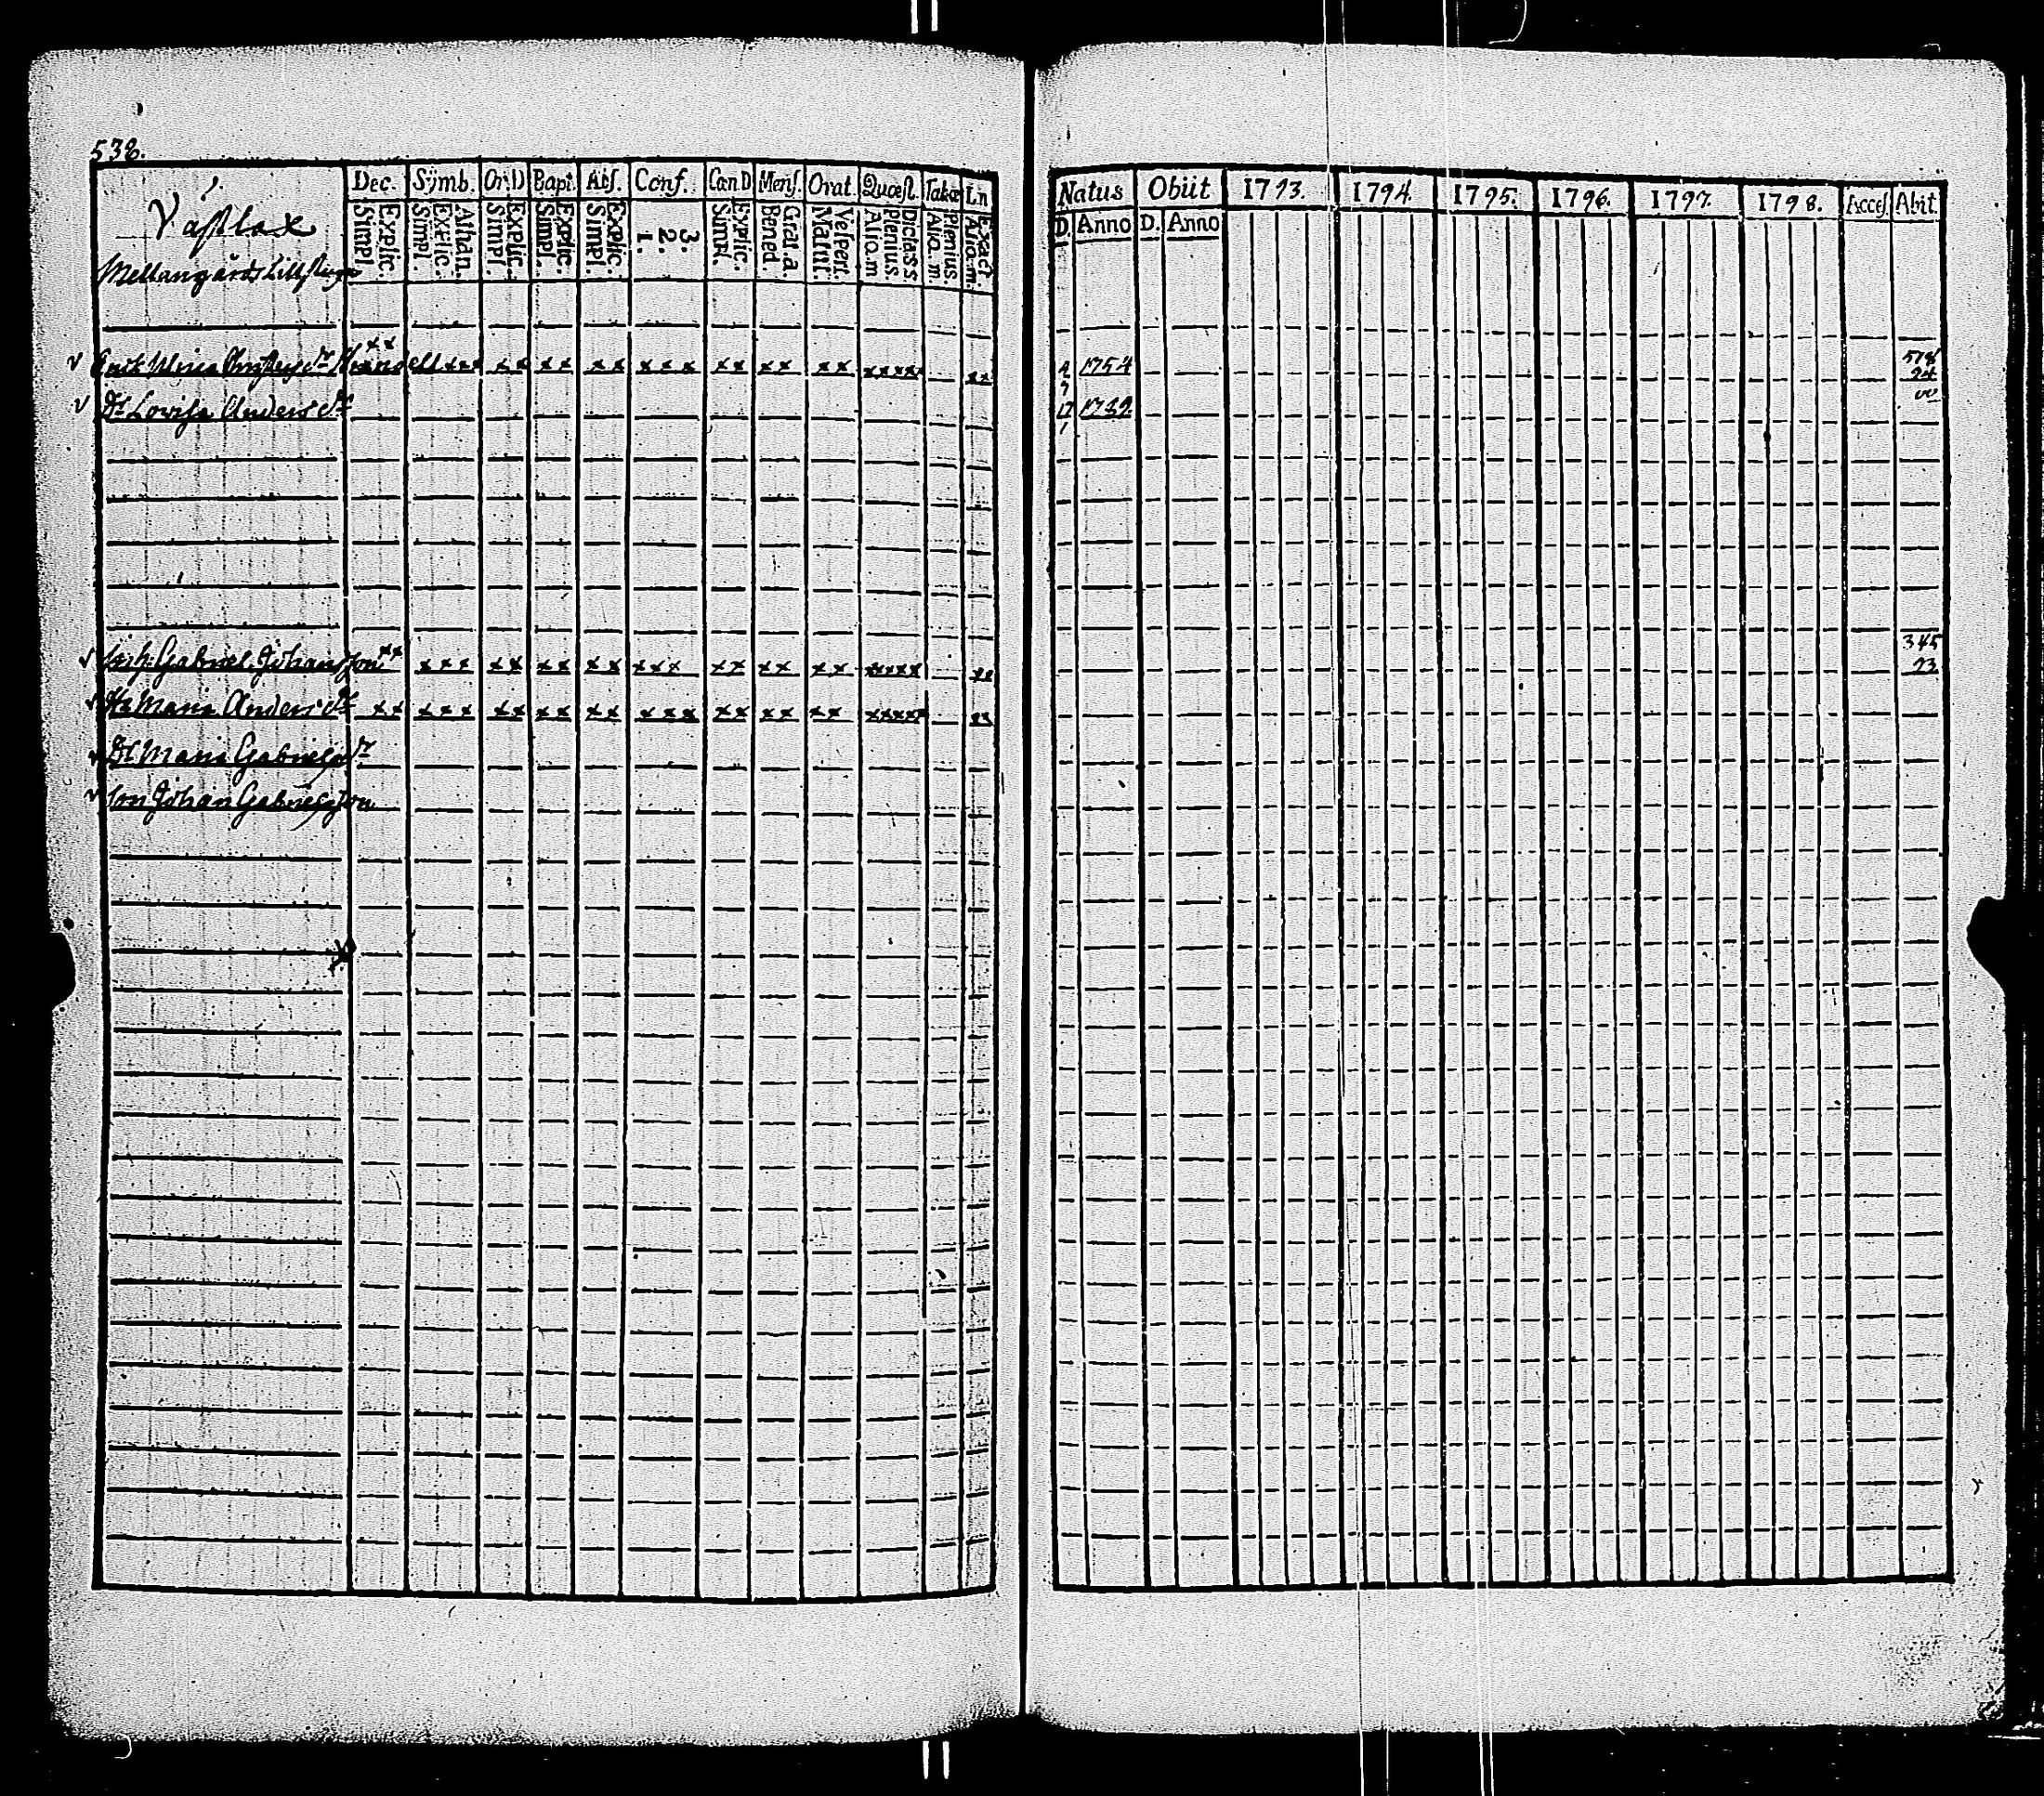 538.
Dec. Symb. Or.D Bapt. Abs. Conf. Can D Mens. Orat. Quæst. Tabæ Ln
Simpl. Explic. Simpl. Explic. Athan. Simpl. Explic. Simpl. Explic. Simpl. Explic. 1. 2. 3. Simpl. Explic. Bened. Grat.a Matut. Vespert. Alio.m Plenius. Dicta s.s. Alio.m. Plenius. Alio.m. Exact.
Västlax
Mellangårds Lillstuga
Natus Obiit 1793. 1794. 1795. 1796. 1797. 1798. Acces. Abit.
D. Anno D. Anno
v Enk. Ulrica dr xx xxx xx xx xx xxx xx xx xx xxxxx xx 1754
v Dr. Lovisa Anders dr 17 1789.
v Gabriel Johansson xx xxx xx xx xx xxx xx xx xx xxxxx xx 345 93
v Hu Maria Anders dr xx xxx xx xx xx xxx xx xx xx xxxxx xx
v Dr Maria Gabriels dr
v Son Johan Gabrielsson